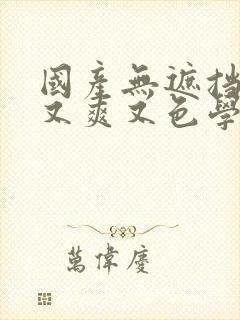 國產無遮挡
又爽又色學
萬偉慶